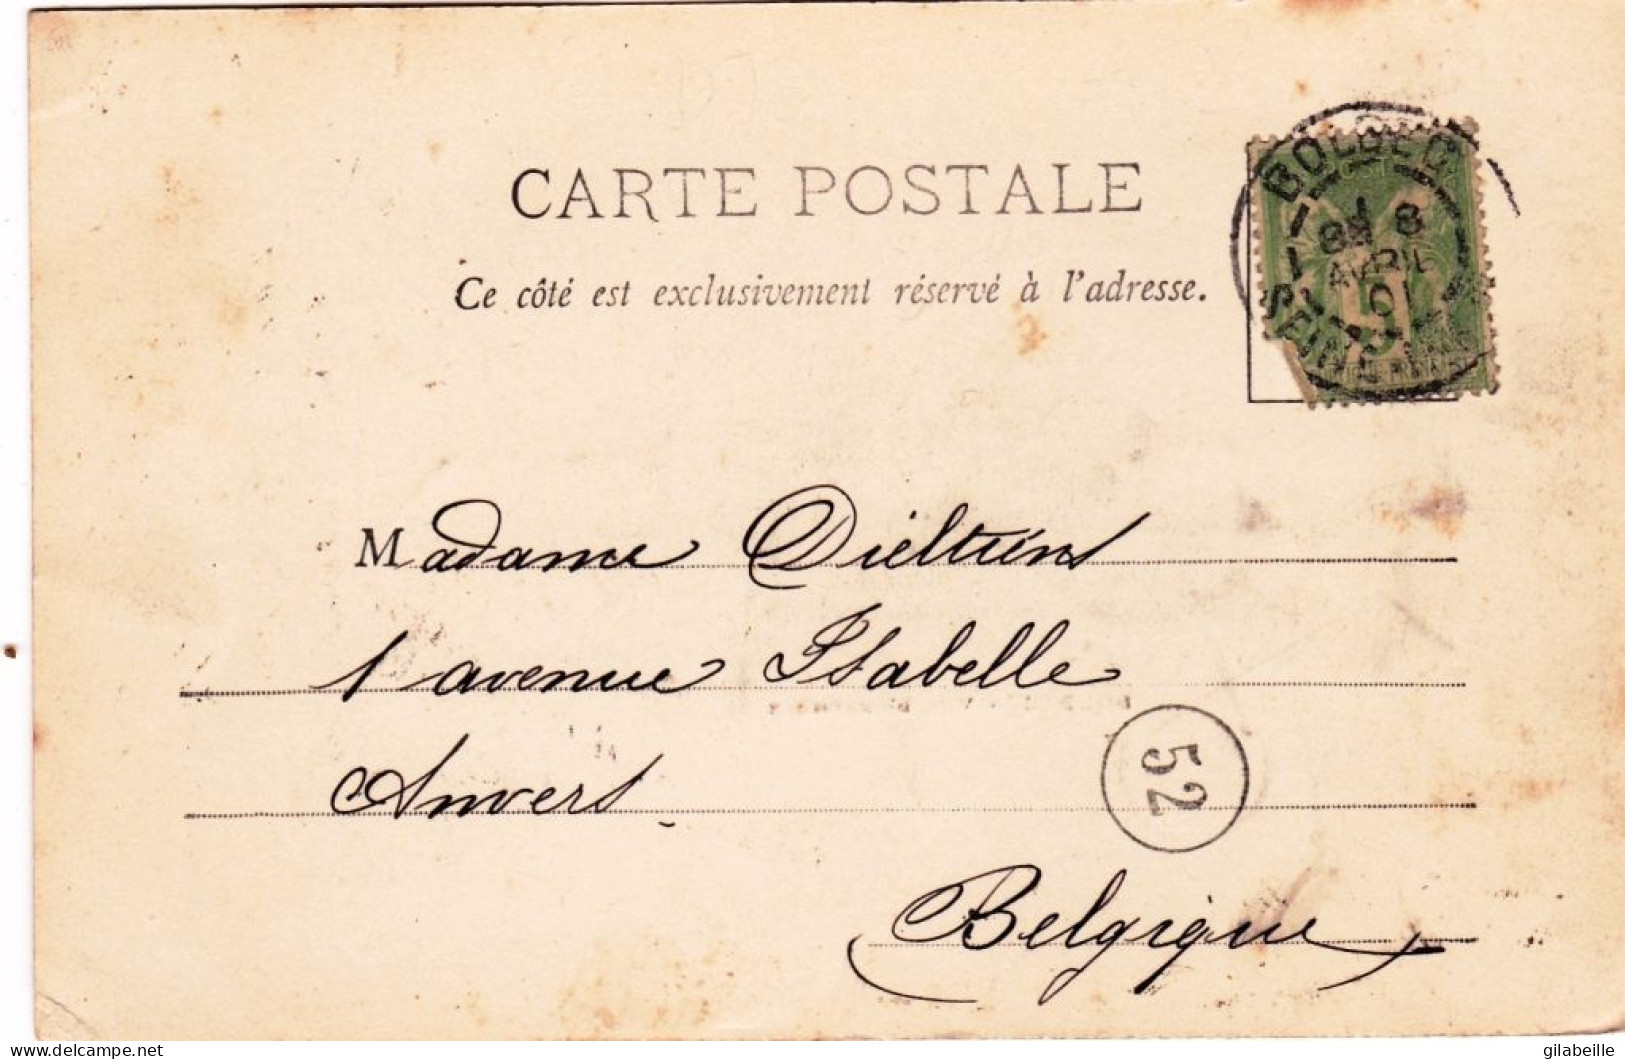 CARTE POSTALE
Ce côté est exclusivement réservé à l'adresse.
BOLBEC
8 AVRIL 01
SEINE
5
Madame Dieltiens
1 avenue Isabelle
Anvers
52
Belgique
delcampe.net
gilabeille